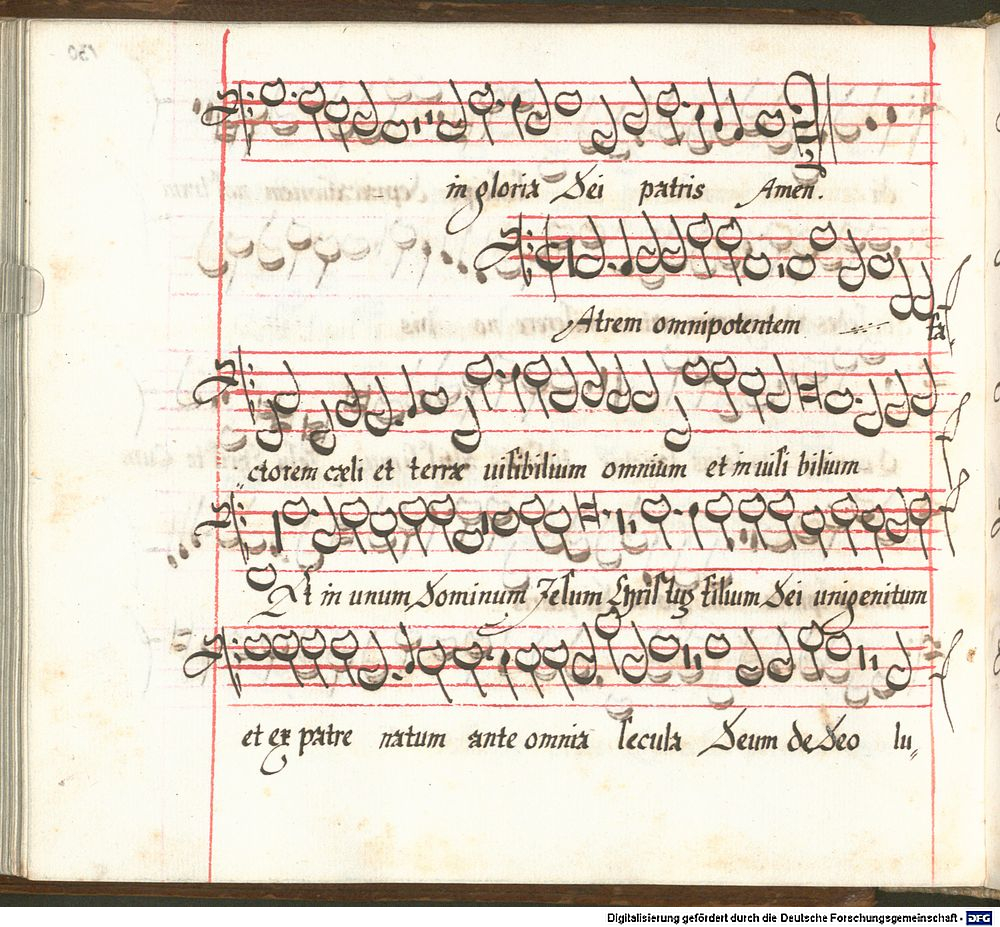 in gloria Dei patris Amen.
Atrem omnipotentem fa„
„ctorem cæli et terræ uisibilium omnium et in uisi bilium
Et in unum Dominum Jesum Christuȝ filium Dei unigenitum
et ex patre natum ante omnia secula Deum de Deo lu„
Digitalisierung gefördert durch die Deutsche Forschungsgemeinschaft - DFG